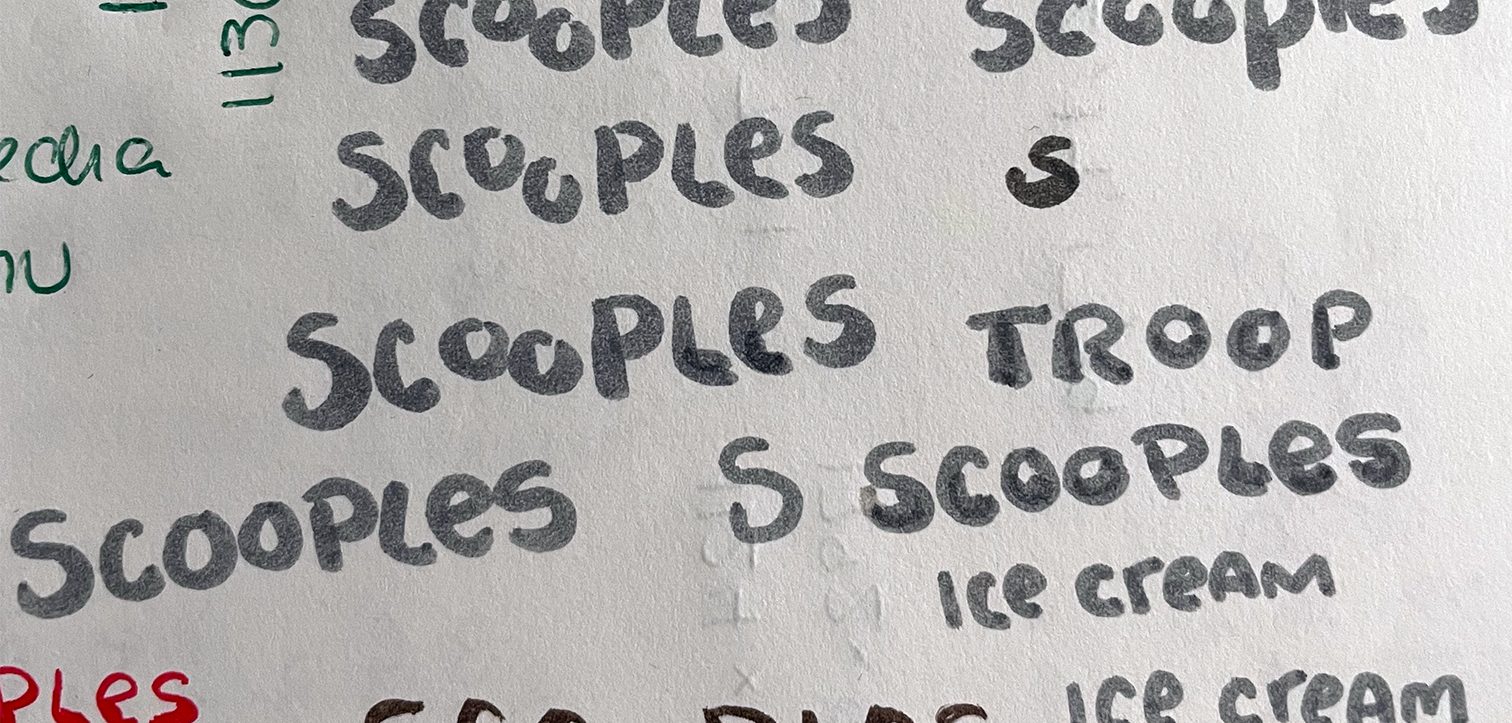 SCOOPLES scooples
113
SCOOPLES S
SCOOPLES TROOP
SCOOPLES S SCOOPLES
ICE CREAM
PLES ICE CREAM